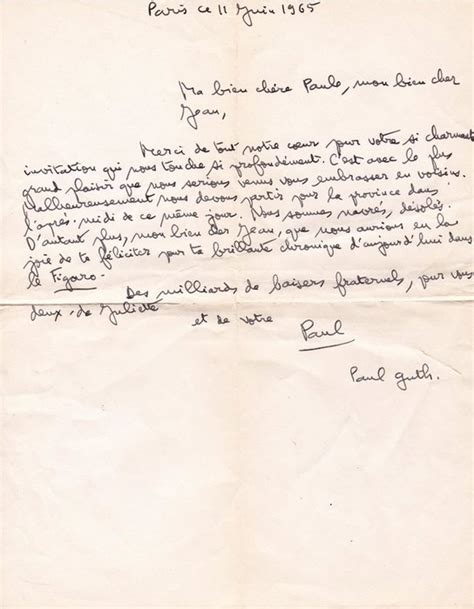 Paris ce 11 Juin 1965
Ma bien chère Paule, mon bien cher
Jean,
Merci de tout notre cœur pour votre si charmante
invitation qui nous touche si profondément. C'est avec le plus
grand plaisir que nous serions venus vous embrasser en voisins.
Malheureusement nous devons partir pour la province dans
l'après-midi de ce même jour. Nous sommes navrés, désolés.
D'autant plus, mon bien cher Jean, que nous aurions eu la
joie de te féliciter pour ta brillante chronique d'aujourd'hui dans
le Figaro.
Des milliards de baisers fraternels, pour vous
deux, de Juliette
et de votre
Paul
Paul Guth.